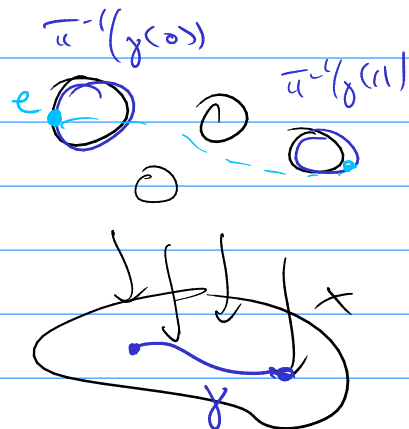 π⁻¹(γ(0))
π⁻¹(γ(1))
e
X
γ